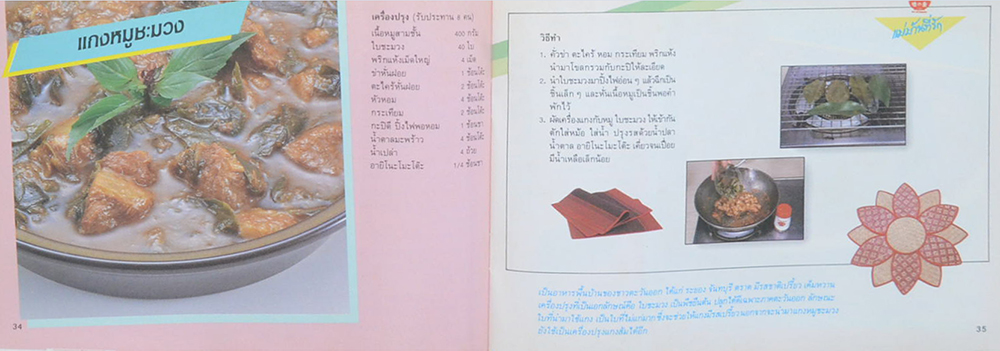 แกงหมูชะมวง
เครื่องปรุง (รับประทาน 8 คน)
เนื้อหมูสามชั้น 400 กรัม
ใบชะมวง 40 ใบ
พริกแห้งเม็ดใหญ่ 4 เม็ด
ข่าหั่นฝอย 1 ช้อนโต๊ะ
ตะไคร้หั่นฝอย 2 ช้อนโต๊ะ
หัวหอม 4 ช้อนโต๊ะ
กระเทียม 2 ช้อนโต๊ะ
กะปิดี ปิ้งไฟพอหอม 1 ช้อนชา
น้ำตาลมะพร้าว 4 ช้อนโต๊ะ
น้ำเปล่า 4 ถ้วย
อายิโนะโมะโต๊ะ 1/4 ช้อนชา
34
แม่บ้านที่รัก
วิธีทำ
1. คั่วข่า ตะไคร้ หอม กระเทียม พริกแห้ง
นำมาโขลกรวมกับกะปิให้ละเอียด
2. นำใบชะมวงมาปิ้งไฟอ่อน ๆ แล้วฉีกเป็น
ชิ้นเล็ก ๆ และหั่นเนื้อหมูเป็นชิ้นพอคำ
พักไว้
3. ผัดเครื่องแกงกับหมู ใบชะมวง ให้เข้ากัน
ตักใส่หม้อ ใส่น้ำ ปรุงรสด้วยน้ำปลา
น้ำตาล อายิโนะโมะโต๊ะ เคี่ยวจนเปื่อย
มีน้ำเหลือเล็กน้อย
เป็นอาหารพื้นบ้านของชาวตะวันออก ได้แก่ ระยอง จันทบุรี ตราด มีรสชาติเปรี้ยว เค็มหวาน
เครื่องปรุงที่เป็นเอกลักษณ์คือ ใบชะมวง เป็นพืชยืนต้น ปลูกได้ดีเฉพาะภาคตะวันออก ลักษณะ
ใบที่นำมาใช้แกง เป็นใบที่ไม่แก่มาก ซึ่งจะช่วยให้แกงมีรสเปรี้ยวนอกจากจะนำมาแกงหมูชะมวง
ยังใช้เป็นเครื่องปรุงแกงส้มได้อีก
35